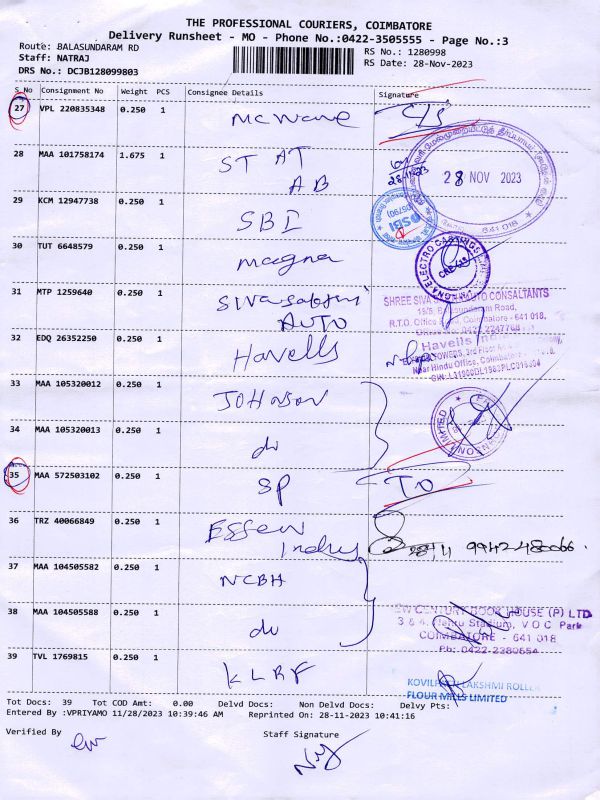 THE PROFESSIONAL COURIERS, COIMBATORE
Delivery Runsheet - MO - Phone No.:0422-3505555 - Page No.:3
Route: BALASUNDARAM RD
RS No.: 1280998
Staff: NATRAJ
RS Date: 28-Nov-2023
DRS No.: DCJB128099803
S.No Consignment No Weight PCS Consignee Details Signature
27 VPL 220835348 0.250 1 Mcwane
28 MAA 101758174 1.675 1 ST AT
AB
28 NOV 2023
641 018
29 KCM 12947738 0.250 1 SBI
SBI
30 TUT 6648579 0.250 1 Magna
31 MTP 1259640 0.250 1 Sivasakthi
Auto
SHREE SIVA AUTO CONSULTANTS
18/5, Balasundaram Road,
R.T.O. Office Coimbatore - 641 018.
32 EDQ 26352250 0.250 1 Havells
Havells
3rd Floor
Near Hindu Office, Coimbatore
33 MAA 105320012 0.250 1 Johnson
34 MAA 105320013 0.250 1 do
35 MAA 572503102 0.250 1 SP TO
36 TRZ 40066849 0.250 1 Essen
28/11 9942480066
37 MAA 104505582 0.250 1 NCBH
38 MAA 104505588 0.250 1 do
NEW CENTURY BOOK HOUSE (P) LTD
3 & 4, Nehru Stadium, V O C Park
COIMBATORE - 641 018
Ph: 0422-2380554
39 TVL 1769815 0.250 1 KLRF
KOVILPATTI LAKSHMI ROLLER
FLOUR MILLS LIMITED
Tot Docs: 39 Tot COD Amt: 0.00 Delvd Docs: Non Delvd Docs: Delvy Pts:
Entered By :VPRIYAMO 11/28/2023 10:39:46 AM Reprinted On: 28-11-2023 10:41:16
Verified By Staff Signature